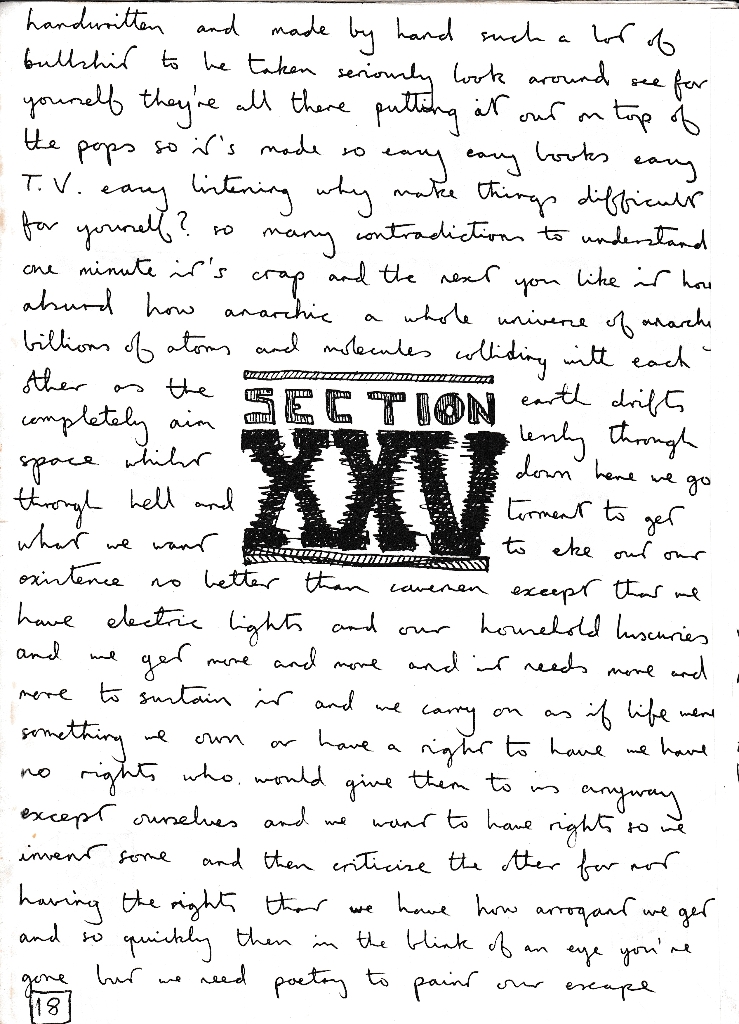 handwritten and made by hand such a lot of
bullshit to be taken seriously look around see for
yourself they're all there putting it out on top of
the pops so it's made so easy easy books easy
T.V. easy listening why make things difficult
for yourself? so many contradictions to understand
one minute it's crap and the next you like it how
absurd how anarchic a whole universe of anarchy
billions of atoms and molecules colliding with each
other as the earth drifts
SECTION
completely aim lessly through
space whilst down here we go
XXV
through hell and torment to get
what we want to eke out our
existence no better than cavemen except that we
have electric lights and our household luxuries
and we get more and more and it needs more and
more to sustain it and we carry on as if life were
something we own or have a right to have we have
no rights who would give them to us anyway
except ourselves and we want to have rights so we
invent some and then criticize the other for not
having the rights that we have how arrogant we get
and so quickly then in the blink of an eye you're
gone but we need poetry to paint our escape
18